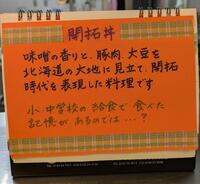 開拓丼
味噌の香りと、豚肉、大豆を
北海道の大地に見立て、開拓
時代を表現した料理です
小・中学校の給食で食べた
記憶があるのでは…？